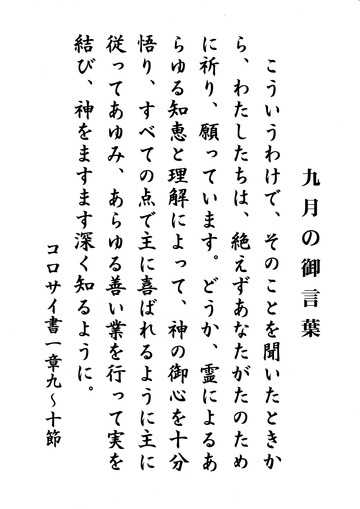 九月の御言葉
こういうわけで、そのことを聞いたときか
ら、わたしたちは、絶えずあなたがたのため
に祈り、願っています。どうか、霊によるあ
らゆる知恵と理解によって、神の御心を十分
悟り、すべての点で主に喜ばれるように主に
従ってあゆみ、あらゆる善い業を行って実を
結び、神をますます深く知るように。
コロサイ書一章九～十節